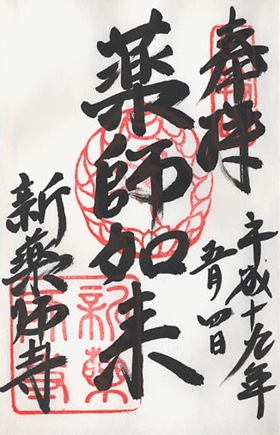 奉拝
平成十九年
五月四日
薬師如来
新薬師寺
新薬
師寺